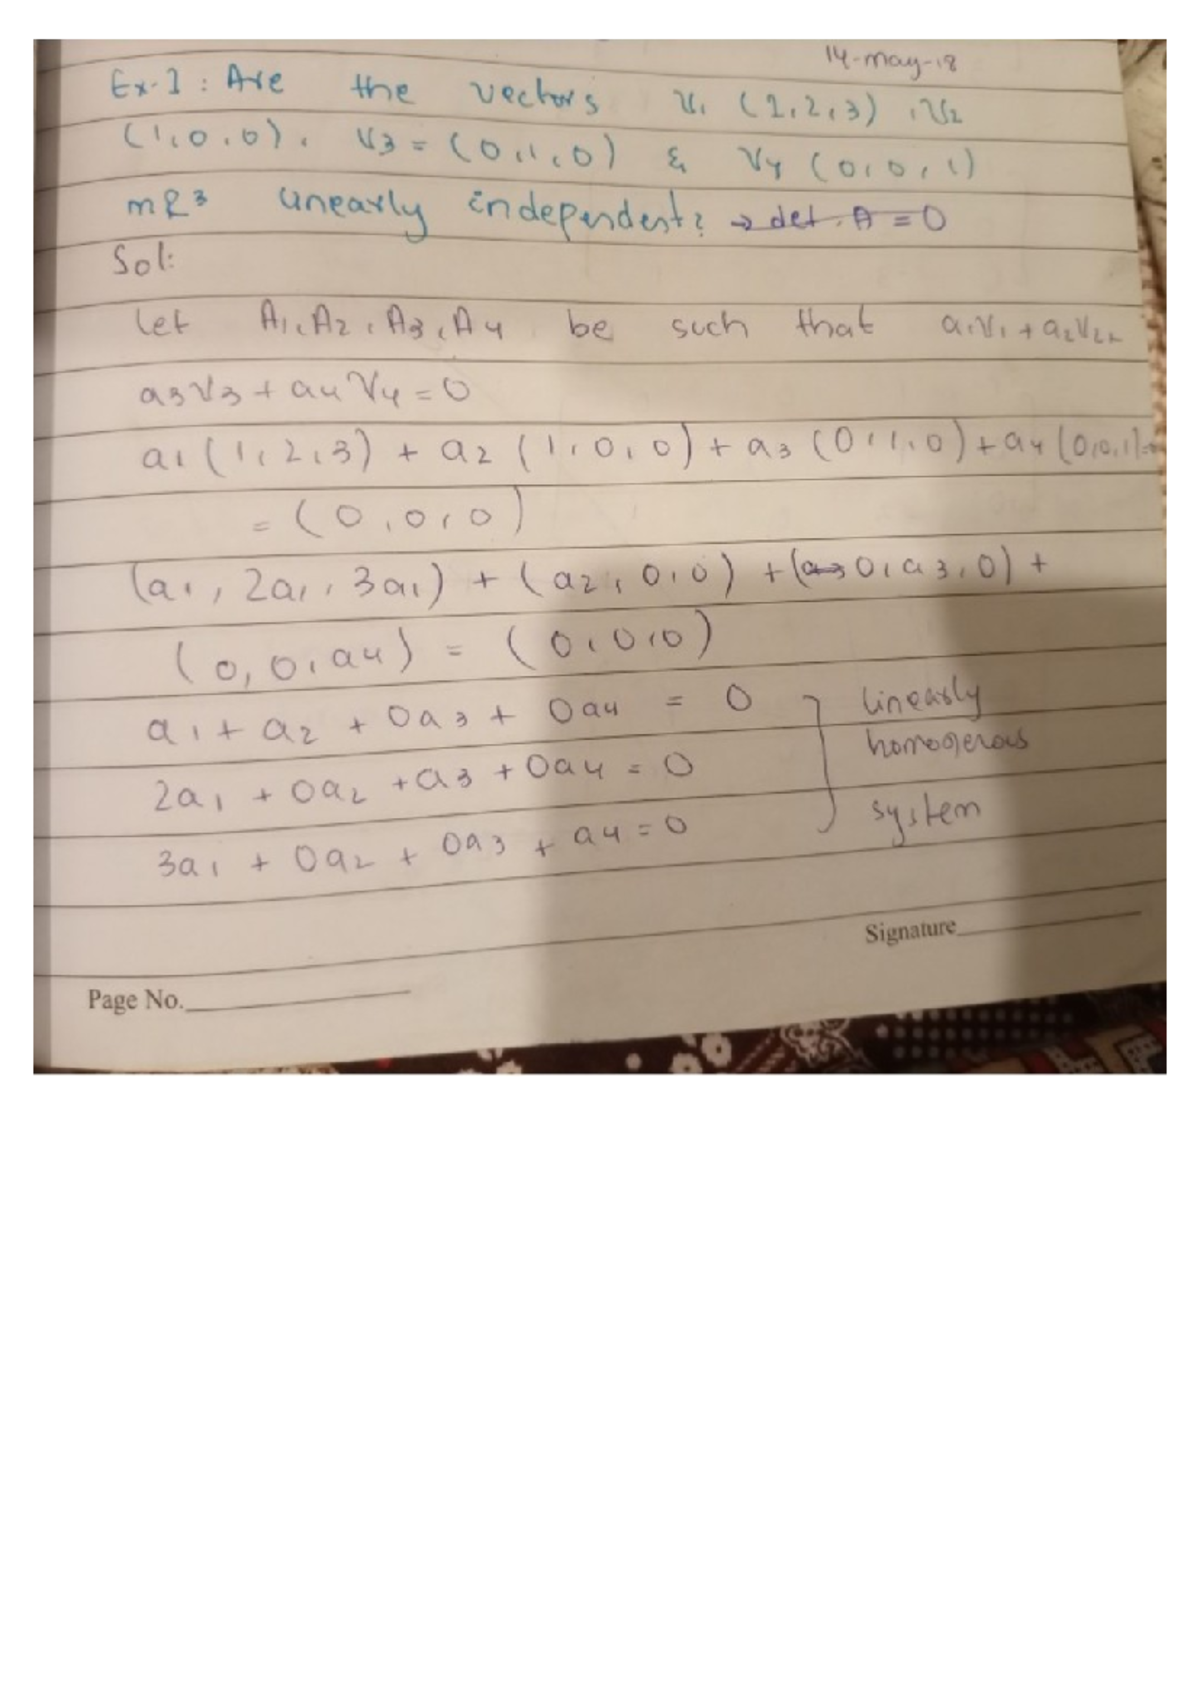 14-may-18
Ex-1 : Are the vectors V1 (1,2,3) , V2
(1,0,0), V3 = (0,1,0) & V4 (0,0,1)
m R3 linearly independent? → det. A = 0
Sol:
Let A1, A2, A3, A4 be such that a1V1 + a2V2+
a3V3 + a4V4 = 0
a1 (1,2,3) + a2 (1,0,0) + a3 (0,1,0) + a4 (0,0,1) =
= (0,0,0)
(a1, 2a1, 3a1) + (a2, 0,0) + (0, a3, 0) +
(0,0,a4) = (0,0,0)
a1 + a2 + 0a3 + 0a4 = 0 linearly
homogerous
2a1 + 0a2 + a3 + 0a4 = 0
system
3a1 + 0a2 + 0a3 + a4 = 0
Signature
Page No.